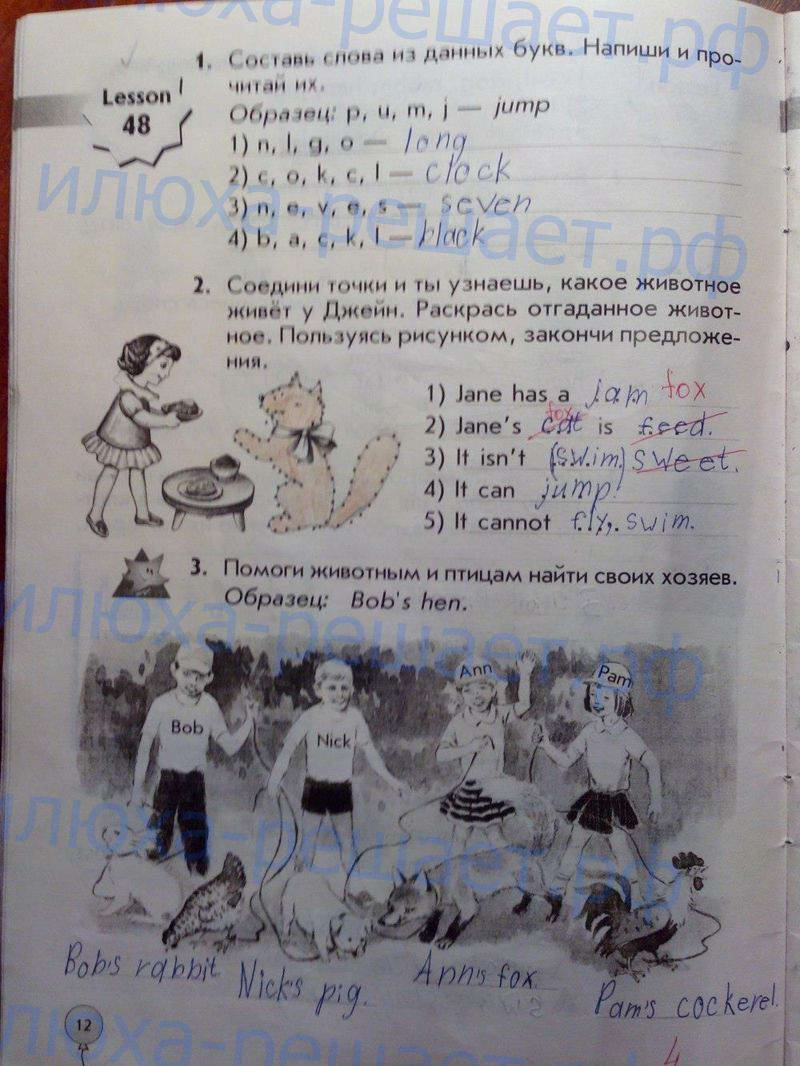 илюха-решает.рф
1. Составь слова из данных букв. Напиши и про-
читай их.
Lesson
48
Образец: p, u, m, j — jump
1) n, l, g, o — long
2) c, o, k, c, l — clock
илюха-решает.рф
3) n, e, v, e, s — seven
4) b, a, c, k, l — black
2. Соедини точки и ты узнаешь, какое животное
живёт у Джейн. Раскрась отгаданное живот-
ное. Пользуясь рисунком, закончи предложе-
ния.
1) Jane has a jam fox
2) Jane's cat fox is feed.
3) It isn't (swim) sweet.
4) It can jump.
5) It cannot fly, swim.
3. Помоги животным и птицам найти своих хозяев.
Образец: Bob's hen.
илюха-решает.рф
Bob
Nick
Ann
Pam
илюха-решает.рф
Bob's rabbit
Nick's pig.
Ann's fox
Pam's cockerel.
12
илюха-решает.рф
4